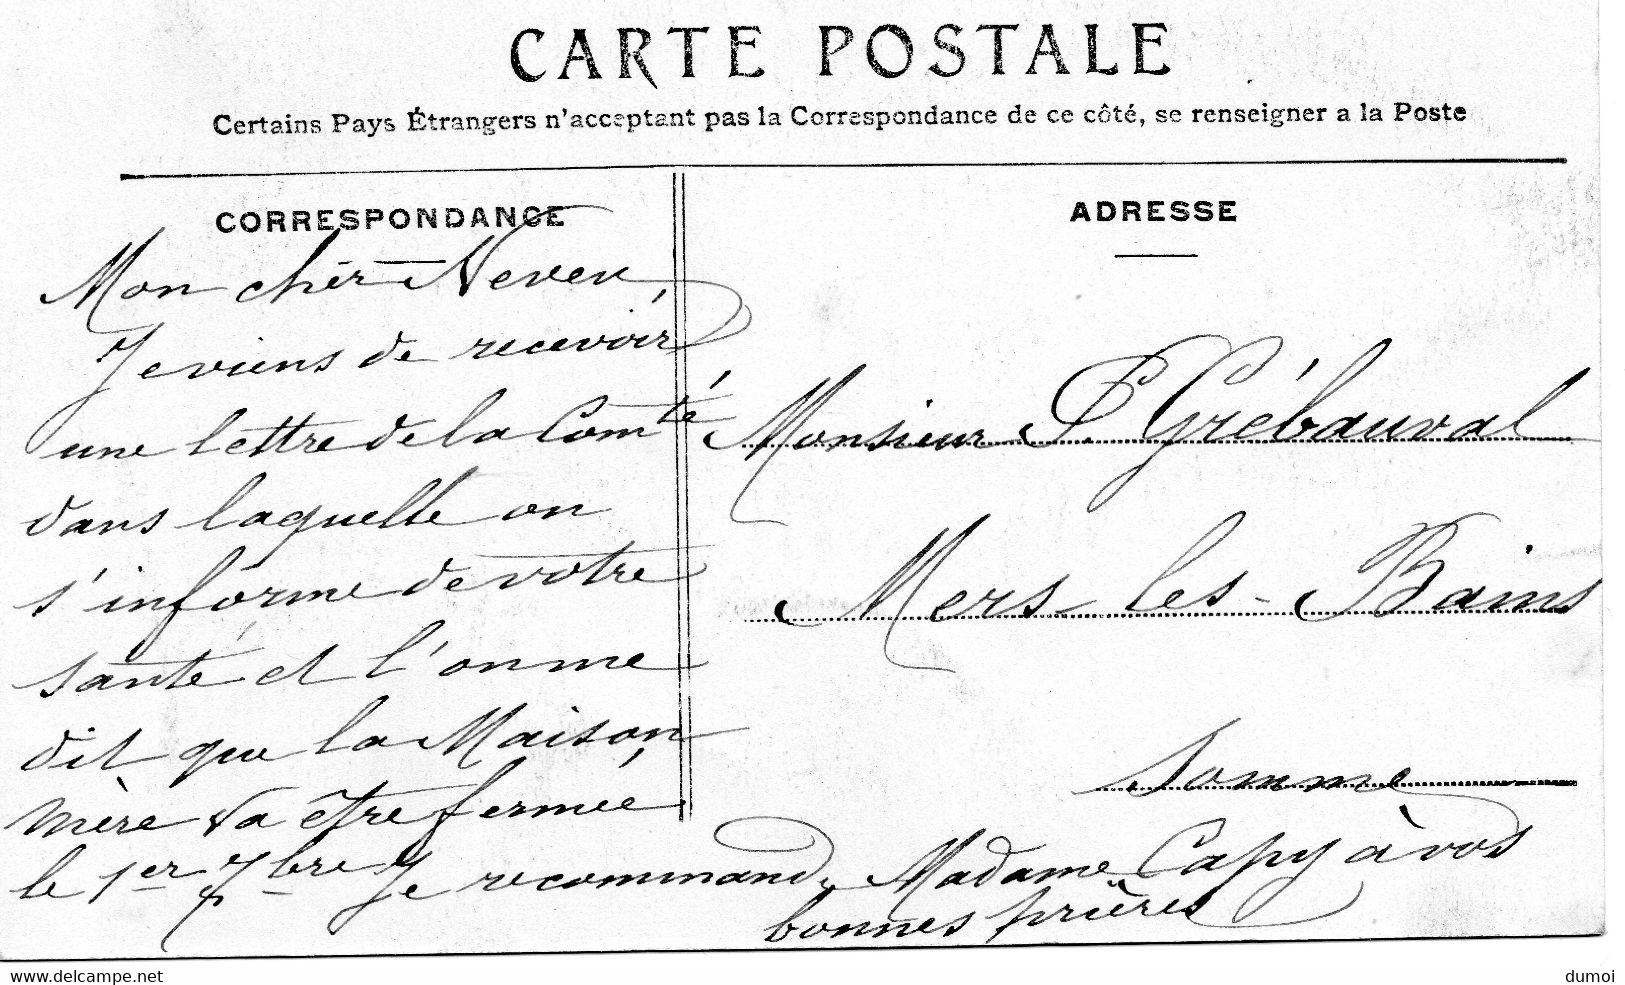 CARTE POSTALE
Certains Pays Étrangers n'acceptant pas la Correspondance de ce côté, se renseigner a la Poste
CORRESPONDANCE
Mon cher Neveu
Je viens de recevoir
une lettre de la Comté
dans laquelle on
s'informe de votre
santé et l'on me
dit que la Maison
mère va être fermée
le 1er 7bre Je recommande Madame Capy à vos
bonnes prières
ADRESSE
Monsieur P. Grébauval
Mers-les-Bains
Somme
www.delcampe.net
dumoi